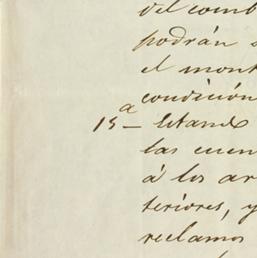 del comb
podrán s
el mont
condición
15ª— Estando
las cuen
á los ar
teriores, y
reclamos